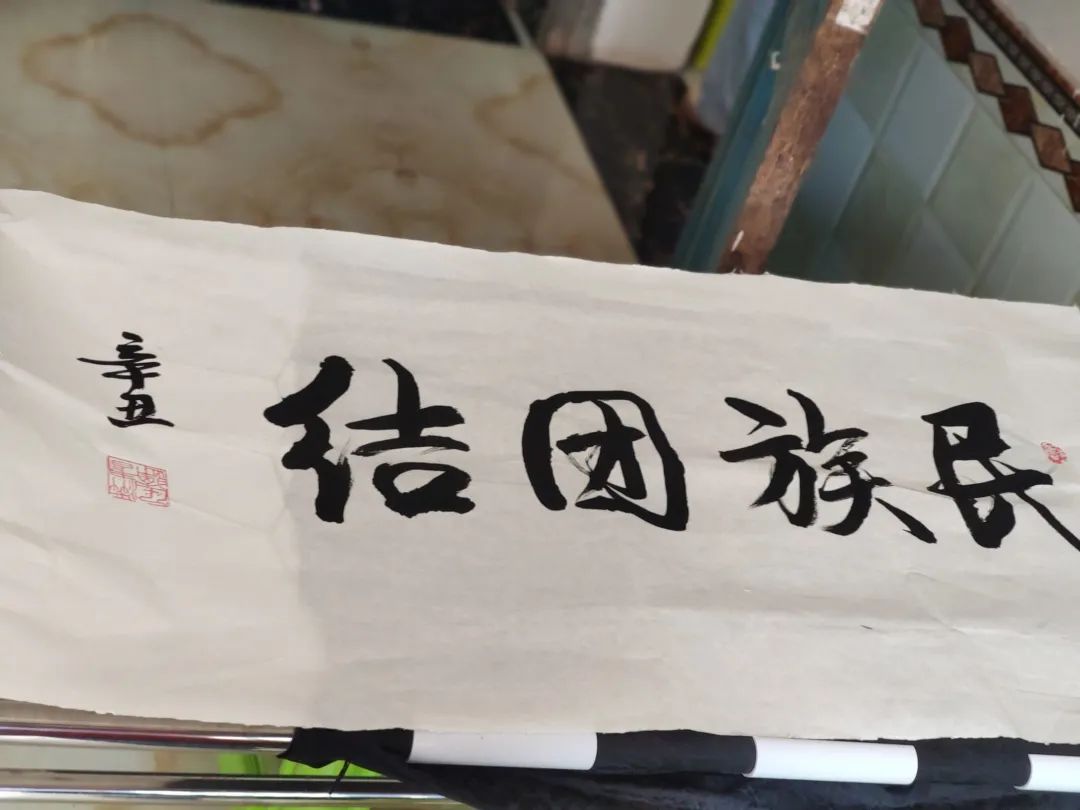 民族团结
辛丑